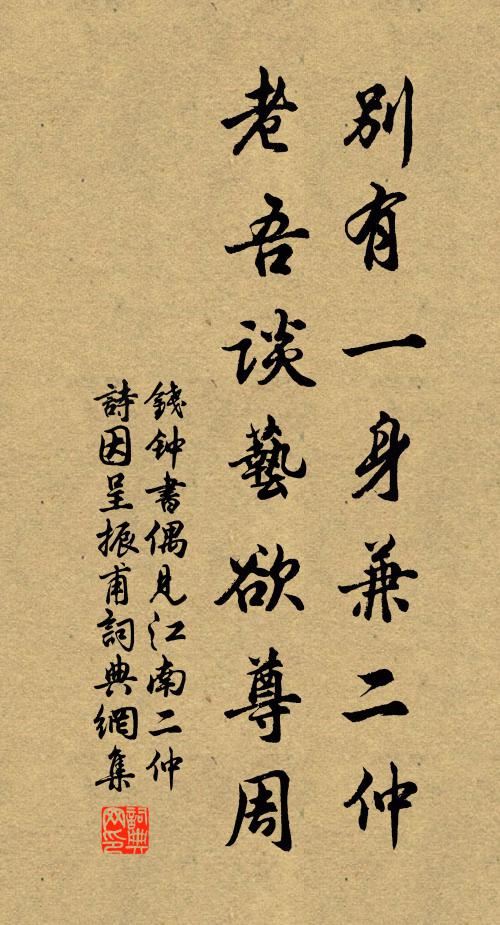 别有一身兼二仲
老吾谈藝欲尊周
錢钟書偶見江南二仲
詩因呈振甫詞典網集
詞典
网印